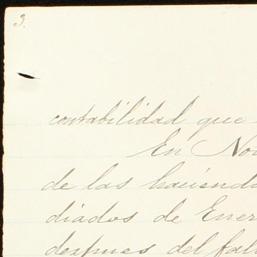 3.
contabilidad que
En Nov
de las haciend
diados de Ener
despues del fall